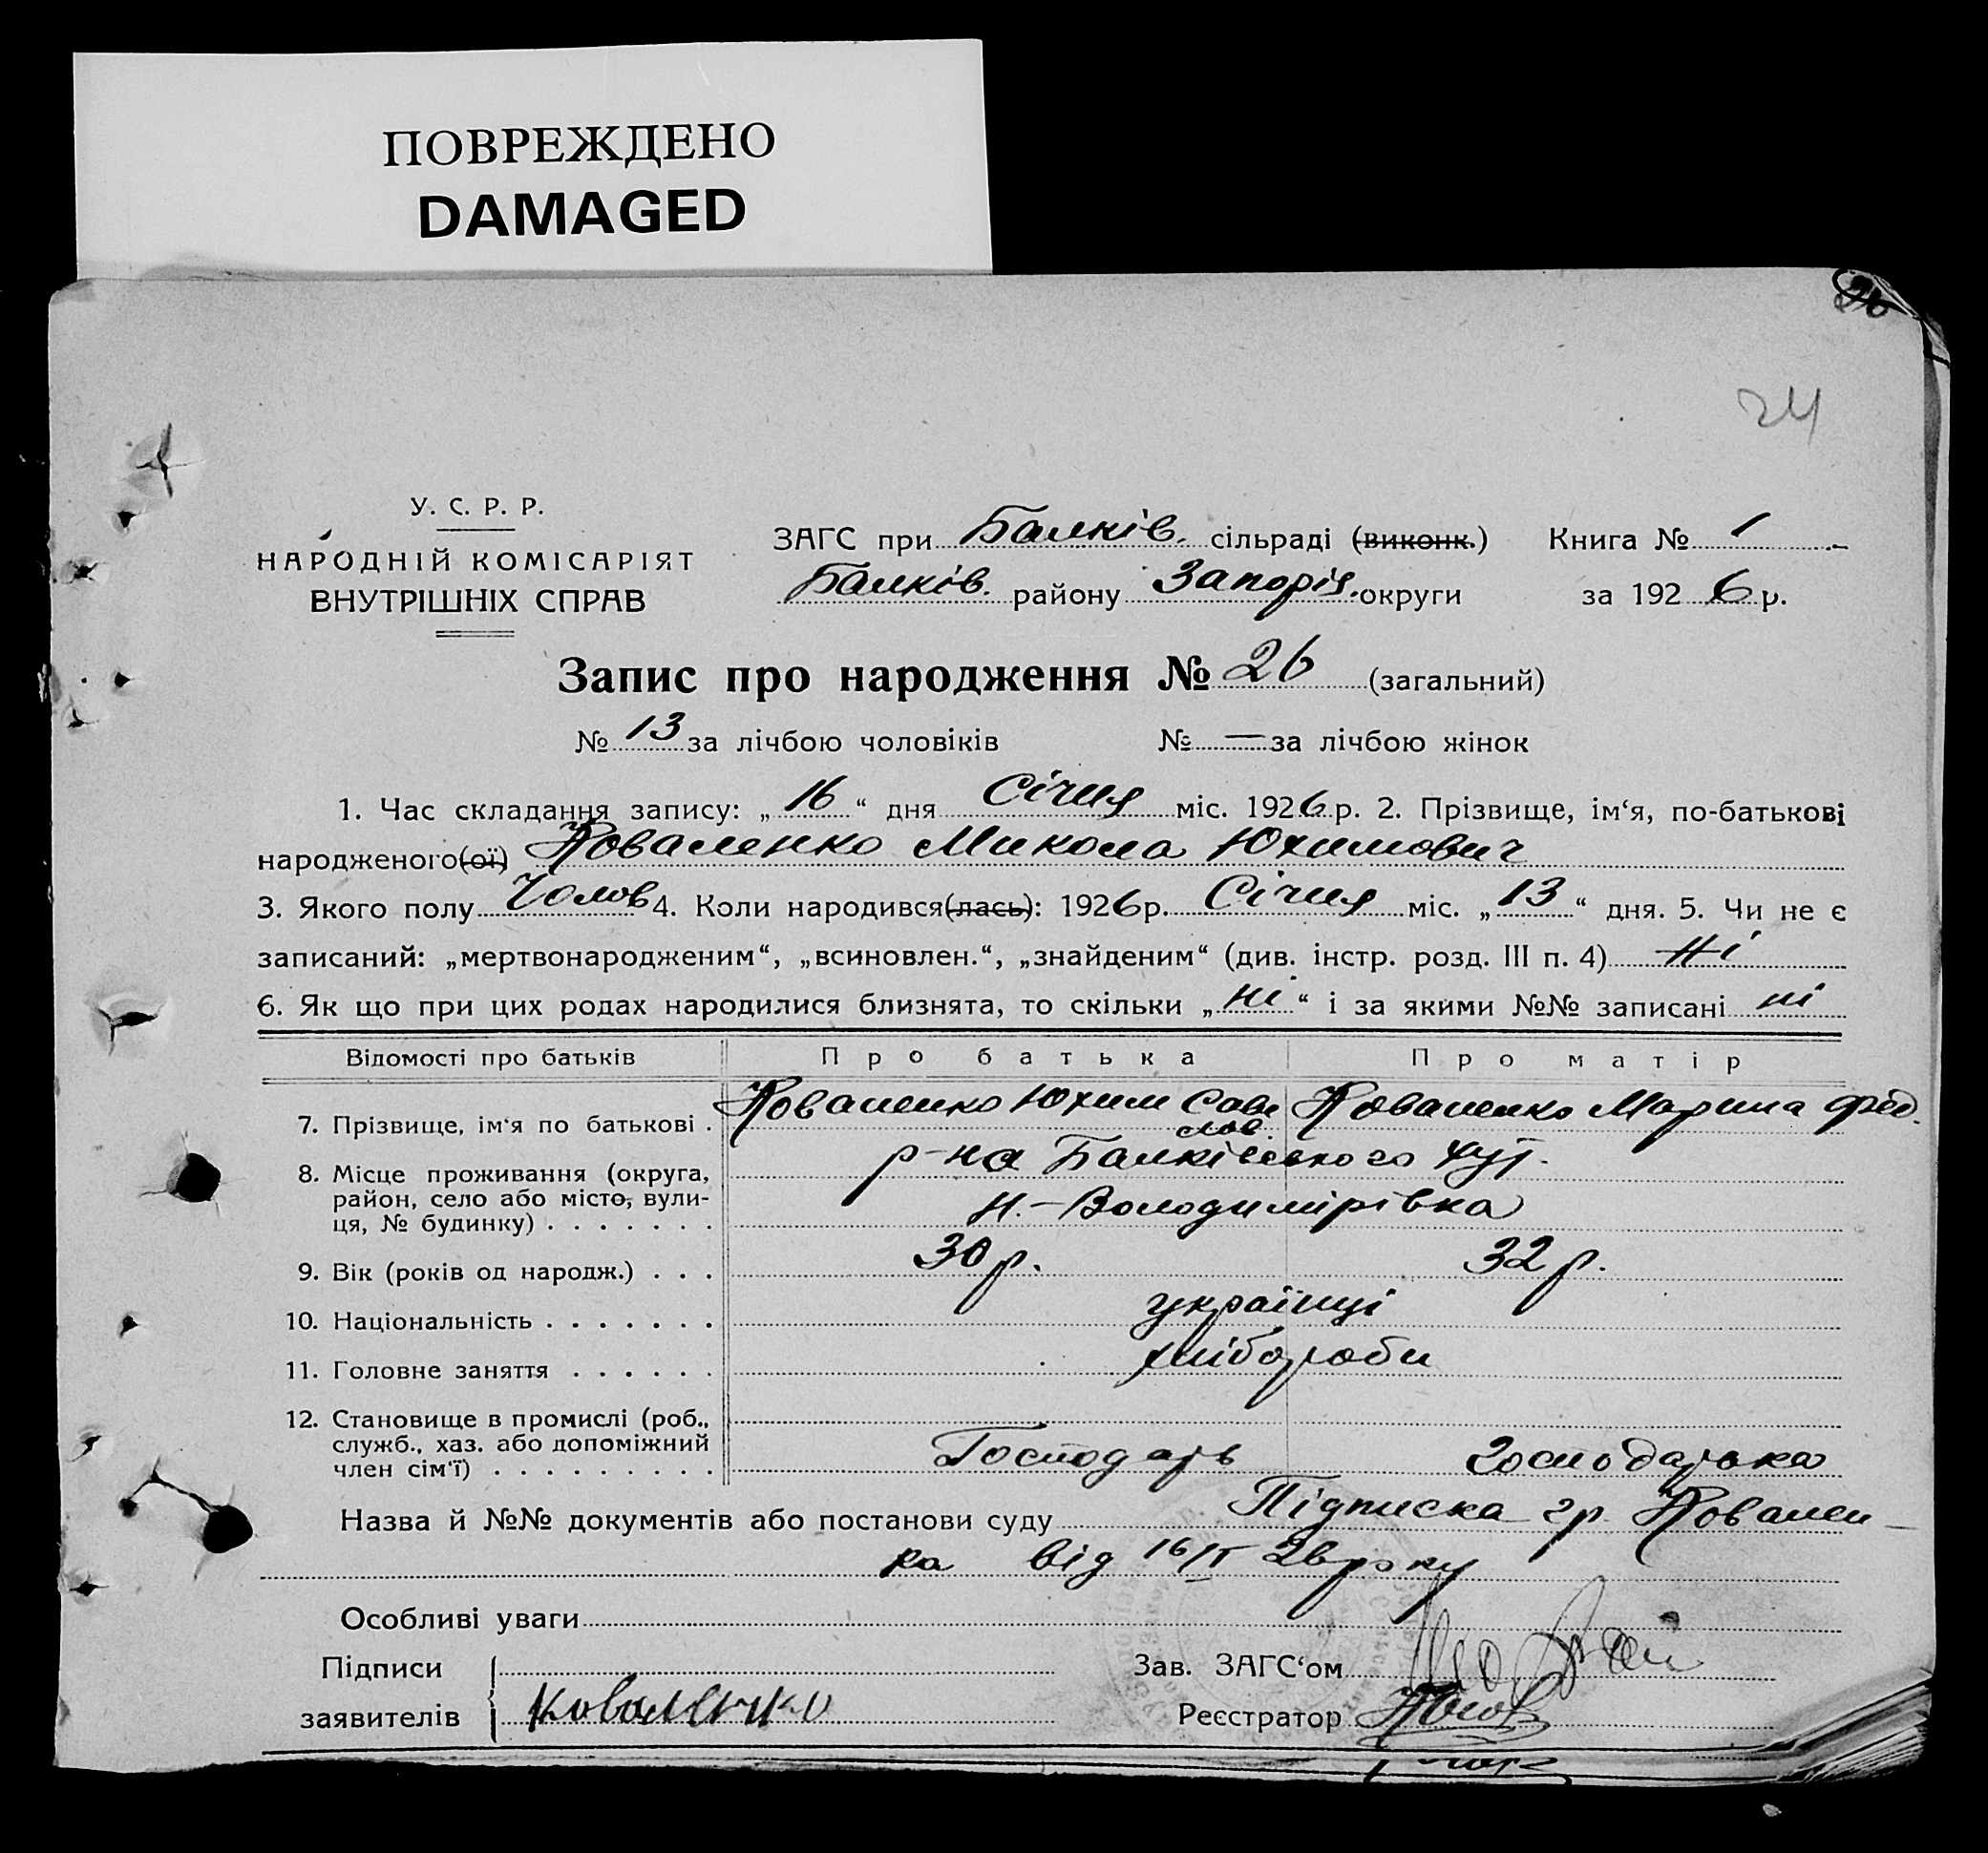 ПОВРЕЖДЕНО
DAMAGED
26
24
У. С. Р. Р.
НАРОДНІЙ КОМІСАРІЯТ
ВНУТРІШНІХ СПРАВ
ЗАГС при Балків. сільраді (виконк.) Книга № 1
Балків. району Запоріз. округи за 1926 р.
Запис про народження № 26 (загальний)
№ 13 за лічбою чоловіків № — за лічбою жінок
1. Час складання запису: „16“ дня Січня міс. 1926 р. 2. Прізвище, ім‘я, по-батькові
народженого(ої) Коваленко Микола Юхимович
3. Якого полу Чолов 4. Коли народився(лась): 1926 р. Січня міс. „13“ дня. 5. Чи не є
записаний: „мертвонародженим“, „всиновлен.“, „знайденим“ (див. інстр. розд. III п. 4) Ні
6. Як що при цих родах народилися близнята, то скільки „ні“ і за якими №№ записані ні
Відомості про батьків Про батька Про матір
7. Прізвище, ім‘я по батькові . Коваленко Юхим Саве Коваленко Марина Фед.
8. Місце проживання (округа, р-на Балківського хут.
район, село або місто, вули-
ця, № будинку) . . . . . . . Н.-Володимирівка
9. Вік (років од народж.) . . . 30 р. 32 р.
10. Національність . . . . . . . українці
11. Головне заняття . . . . . . хлібороби
12. Становище в промислі (роб.,
служб., хаз. або допоміжний
член сім‘ї) . . . . . . . . . Господарь господарька
Назва й №№ документів або постанови суду Підписка гр. Ковален-
ка від 16/I 26 року
Особливі уваги
Підписи Зав. ЗАГС‘ом
заявителів Коваленко Реєстратор